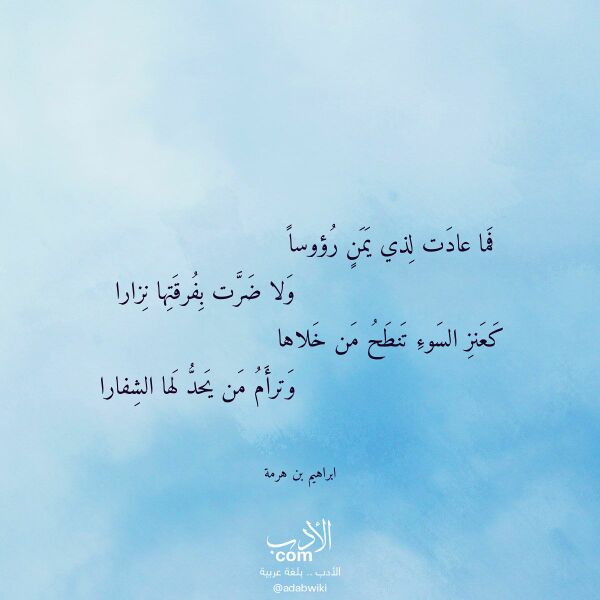 فَما عادَت لِذي يَمَنٍ رُؤوساً
وَلا ضَرَّت بِفُرقَتِها نِزارا
كَعَنزِ السَوءِ تَنطَحُ مَن خَلاها
وَترأَمُ مَن يَحدُّ لَها الشِفارا
ابراهيم بن هرمة
الأدب
com
الأدب .. بلغة عربية
@adabwiki